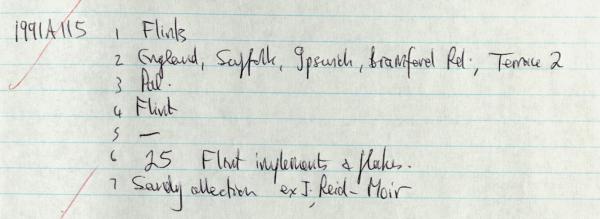 1991A115 1 Flints
2 England, Suffolk, Ipswich, Bramford Rd., Terrace 2
3 Pal.
4 Flint
5 —
6 25 Flint implements & flakes.
7 Sandy collection ex J. Reid-Moir